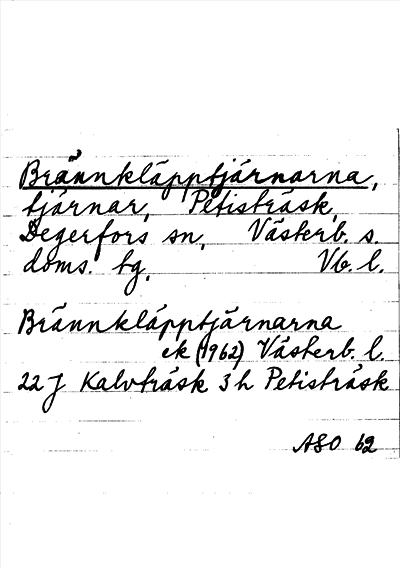 Brännkläpptjärnarna,
tjärnar, Petisträsk,
Degerfors sn, Västerb. s.
doms. tg, Vb. l.
Brännkläpptjärnarna
ek (1962) Västerb. l.
22 J Kalvträsk 3 h Petisträsk
ASO 62